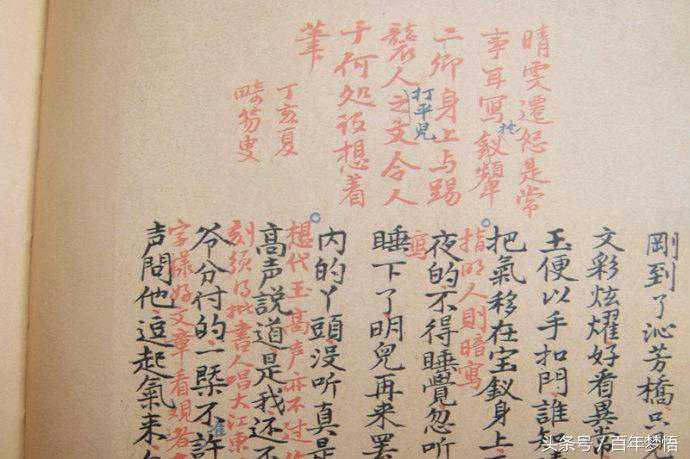 晴雯遷怒是常
事耳寫釵顰
二卿身上与踢
打平兒
襲人之文令人
于何処設想着
筆
丁亥夏
畸笏叟
剛到了沁芳橋只
文彩炫耀好看異
玉便以手扣門誰
把氣移在宝釵身上
指明人則暗寫
夜的不得睡覺忽听
寫
睡下了明兒再来罢
内的丫頭沒听真是
想代玉高声亦不过
高声說道是我还不
刻須得批書人唱大江東
爷分付的一槩不許
字樣好文章看
声問他逗起氣来
头条号/百年梦悟